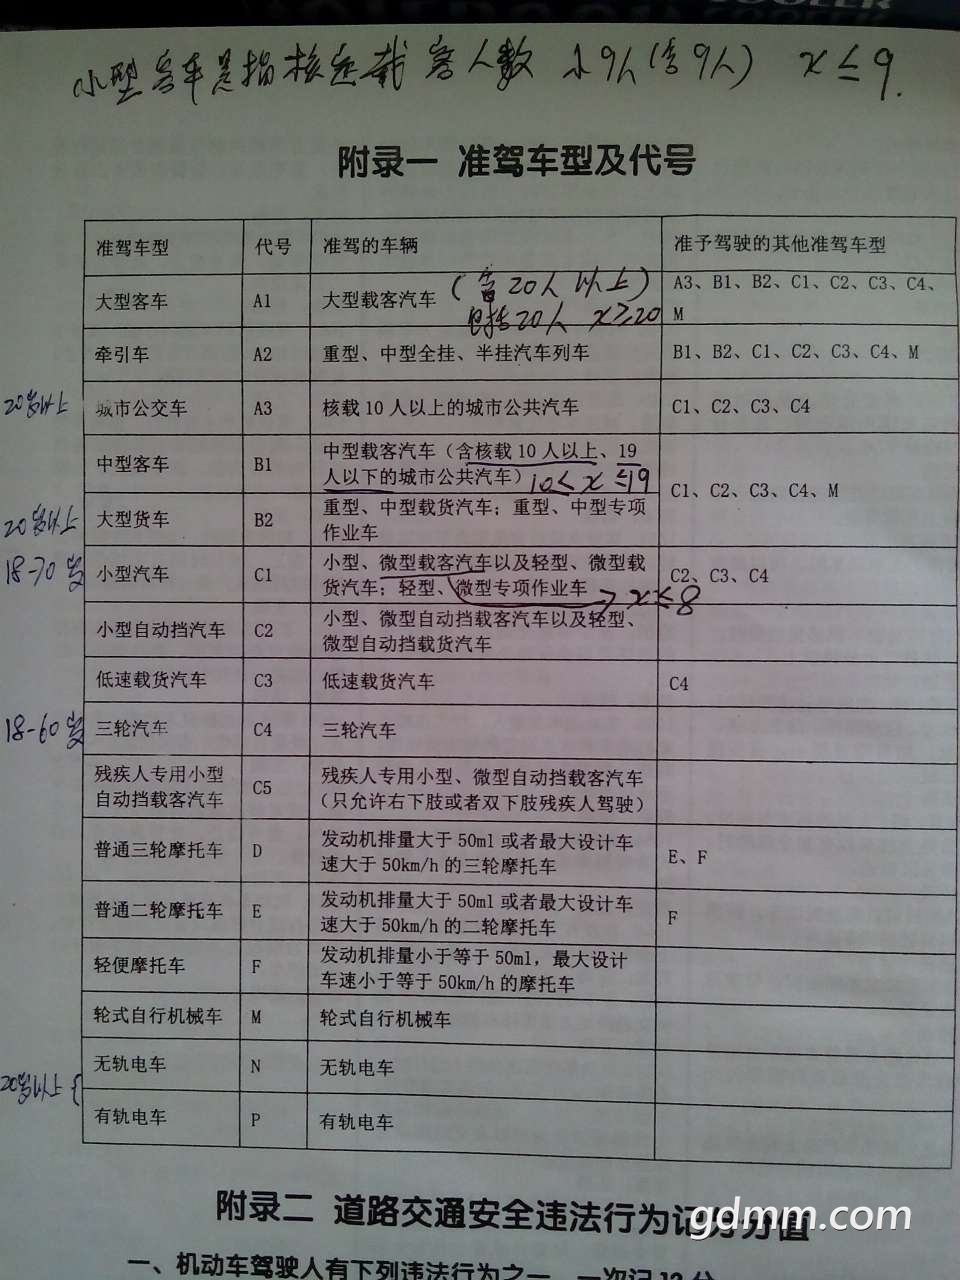 COOLER
小型客车是指核定载客人数 小9人(含9人) x≤9.
附录一 准驾车型及代号
准驾车型 代号 准驾的车辆 准予驾驶的其他准驾车型
大型客车 A1 大型载客汽车 (含20人以上) A3、B1、B2、C1、C2、C3、C4、
包括20人 x≥20 M
牵引车 A2 重型、中型全挂、半挂汽车列车 B1、B2、C1、C2、C3、C4、M
20岁以上 城市公交车 A3 核载10人以上的城市公共汽车 C1、C2、C3、C4
中型客车 B1 中型载客汽车(含核载10人以上、19
人以下的城市公共汽车) 10≤x≤19
C1、C2、C3、C4、M
20岁以上 大型货车 B2 重型、中型载货汽车;重型、中型专项
作业车
18-70岁 小型汽车 C1 小型、微型载客汽车以及轻型、微型载
货汽车;轻型、微型专项作业车 x≤8
C2、C3、C4
小型自动挡汽车 C2 小型、微型自动挡载客汽车以及轻型、
微型自动挡载货汽车
低速载货汽车 C3 低速载货汽车 C4
18-60岁 三轮汽车 C4 三轮汽车
残疾人专用小型 C5 残疾人专用小型、微型自动挡载客汽车
自动挡载客汽车 (只允许右下肢或者双下肢残疾人驾驶)
普通三轮摩托车 D 发动机排量大于50ml或者最大设计车
速大于50km/h的三轮摩托车 E、F
普通二轮摩托车 E 发动机排量大于50ml或者最大设计车
速大于50km/h的二轮摩托车 F
轻便摩托车 F 发动机排量小于等于50ml,最大设计
车速小于等于50km/h的摩托车
轮式自行机械车 M 轮式自行机械车
无轨电车 N 无轨电车
20岁以上{
有轨电车 P 有轨电车
附录二 道路交通安全违法行为记分分值
gdmm.com
一、机动车驾驶人有下列违法行为之一,一次记12分